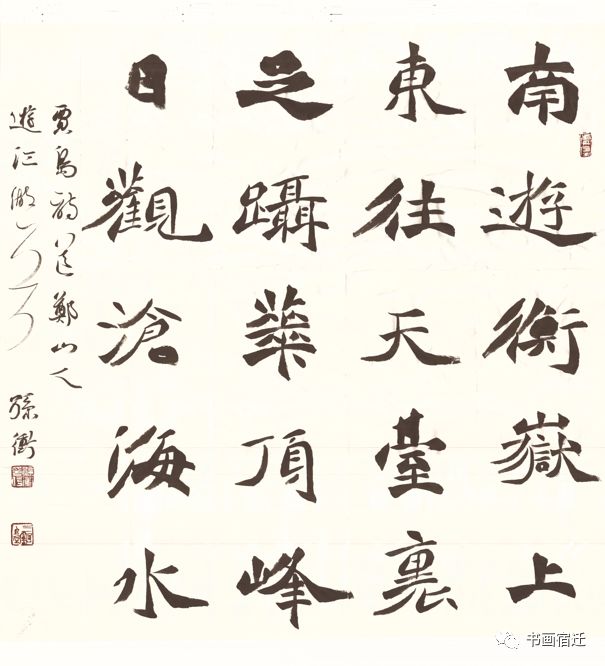 南遊衡嶽上
東往天臺裏
足躡華頂峰
日觀滄海水
賈島詩送鄭山人
遊江湖 孫
书画宿迁